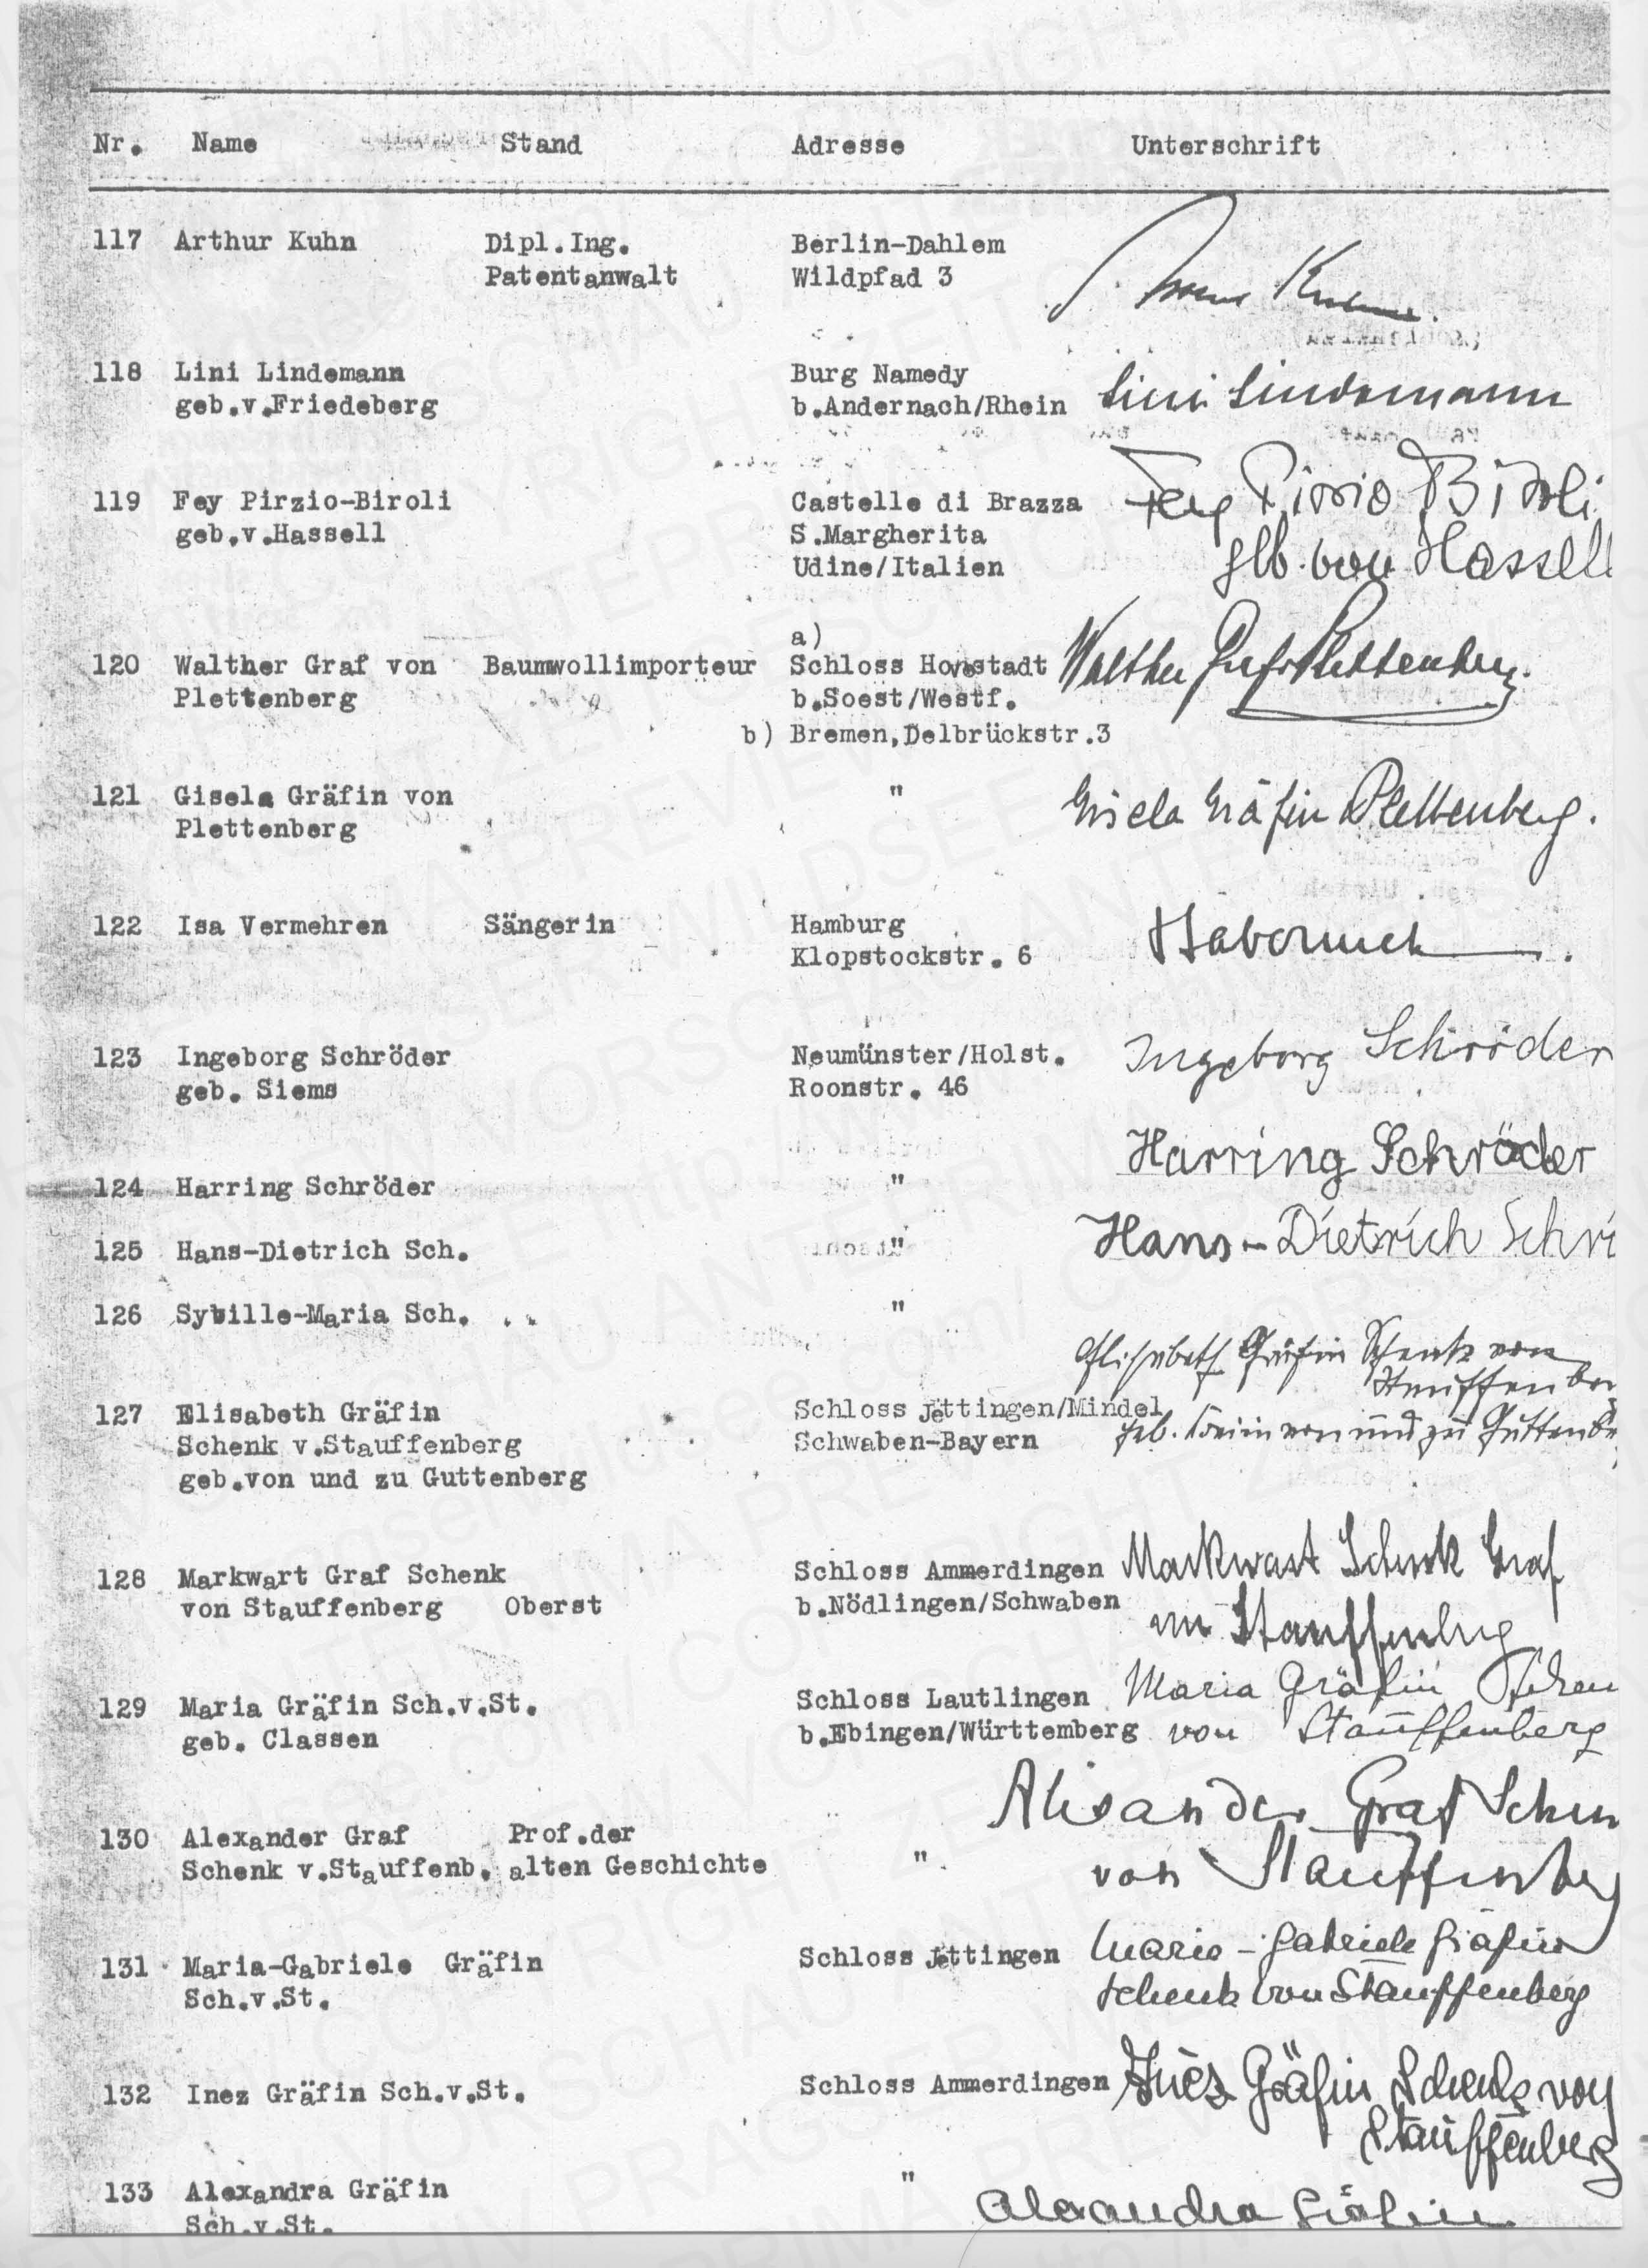 Nr. Name Stand Adresse Unterschrift
117 Arthur Kuhn Dipl.Ing. Berlin-Dahlem
Patentanwalt Wildpfad 3
Kuhn.
118 Lini Lindemann Burg Namedy
geb.v.Friedeberg b.Andernach/Rhein Lini Lindemann
119 Fey Pirzio-Biroli Castelle di Brazza Fey Pirzio Biroli
geb.v.Hassell S.Margherita
Udine/Italien geb. von Hassell
a)
120 Walther Graf von Baumwollimporteur Schloss Hovestadt Walther Graf Plettenberg.
Plettenberg b.Soest/Westf.
b) Bremen,Delbrückstr.3
121 Gisela Gräfin von " Gisela Gräfin Plettenberg.
Plettenberg
122 Isa Vermehren Sängerin Hamburg
Klopstockstr. 6
123 Ingeborg Schröder Neumünster/Holst. Ingeborg Schröder
geb. Siems Roonstr. 46
Harring Schröder
124 Harring Schröder "
125 Hans-Dietrich Sch. " Hans-Dietrich Schrö
126 Sybille-Maria Sch. "
Elisabeth Gräfin Schenk von
Stauffenber
127 Elisabeth Gräfin Schloss Jettingen/Mindel
Schenk v.Stauffenberg Schwaben-Bayern geb. von und zu Guttenbe
geb.von und zu Guttenberg
128 Markwart Graf Schenk Schloss Ammerdingen Markwart Schenk Graf
von Stauffenberg Oberst b.Nödlingen/Schwaben von Stauffenberg
129 Maria Gräfin Sch.v.St. Schloss Lautlingen Maria Gräfin Schen
geb. Classen b.Ebingen/Württemberg von Stauffenberg
Alexander Graf Schen
130 Alexander Graf Prof.der
Schenk v.Stauffenb. alten Geschichte " von Stauffenberg
131 Maria-Gabriele Gräfin Schloss Jettingen Maria-Gabriele Gräfin
Sch.v.St. Schenk von Stauffenberg
132 Inez Gräfin Sch.v.St. Schloss Ammerdingen Inèz Gräfin Schenk von
Stauffenberg
133 Alexandra Gräfin " Alexandra Gräfin
Sch.v.St.